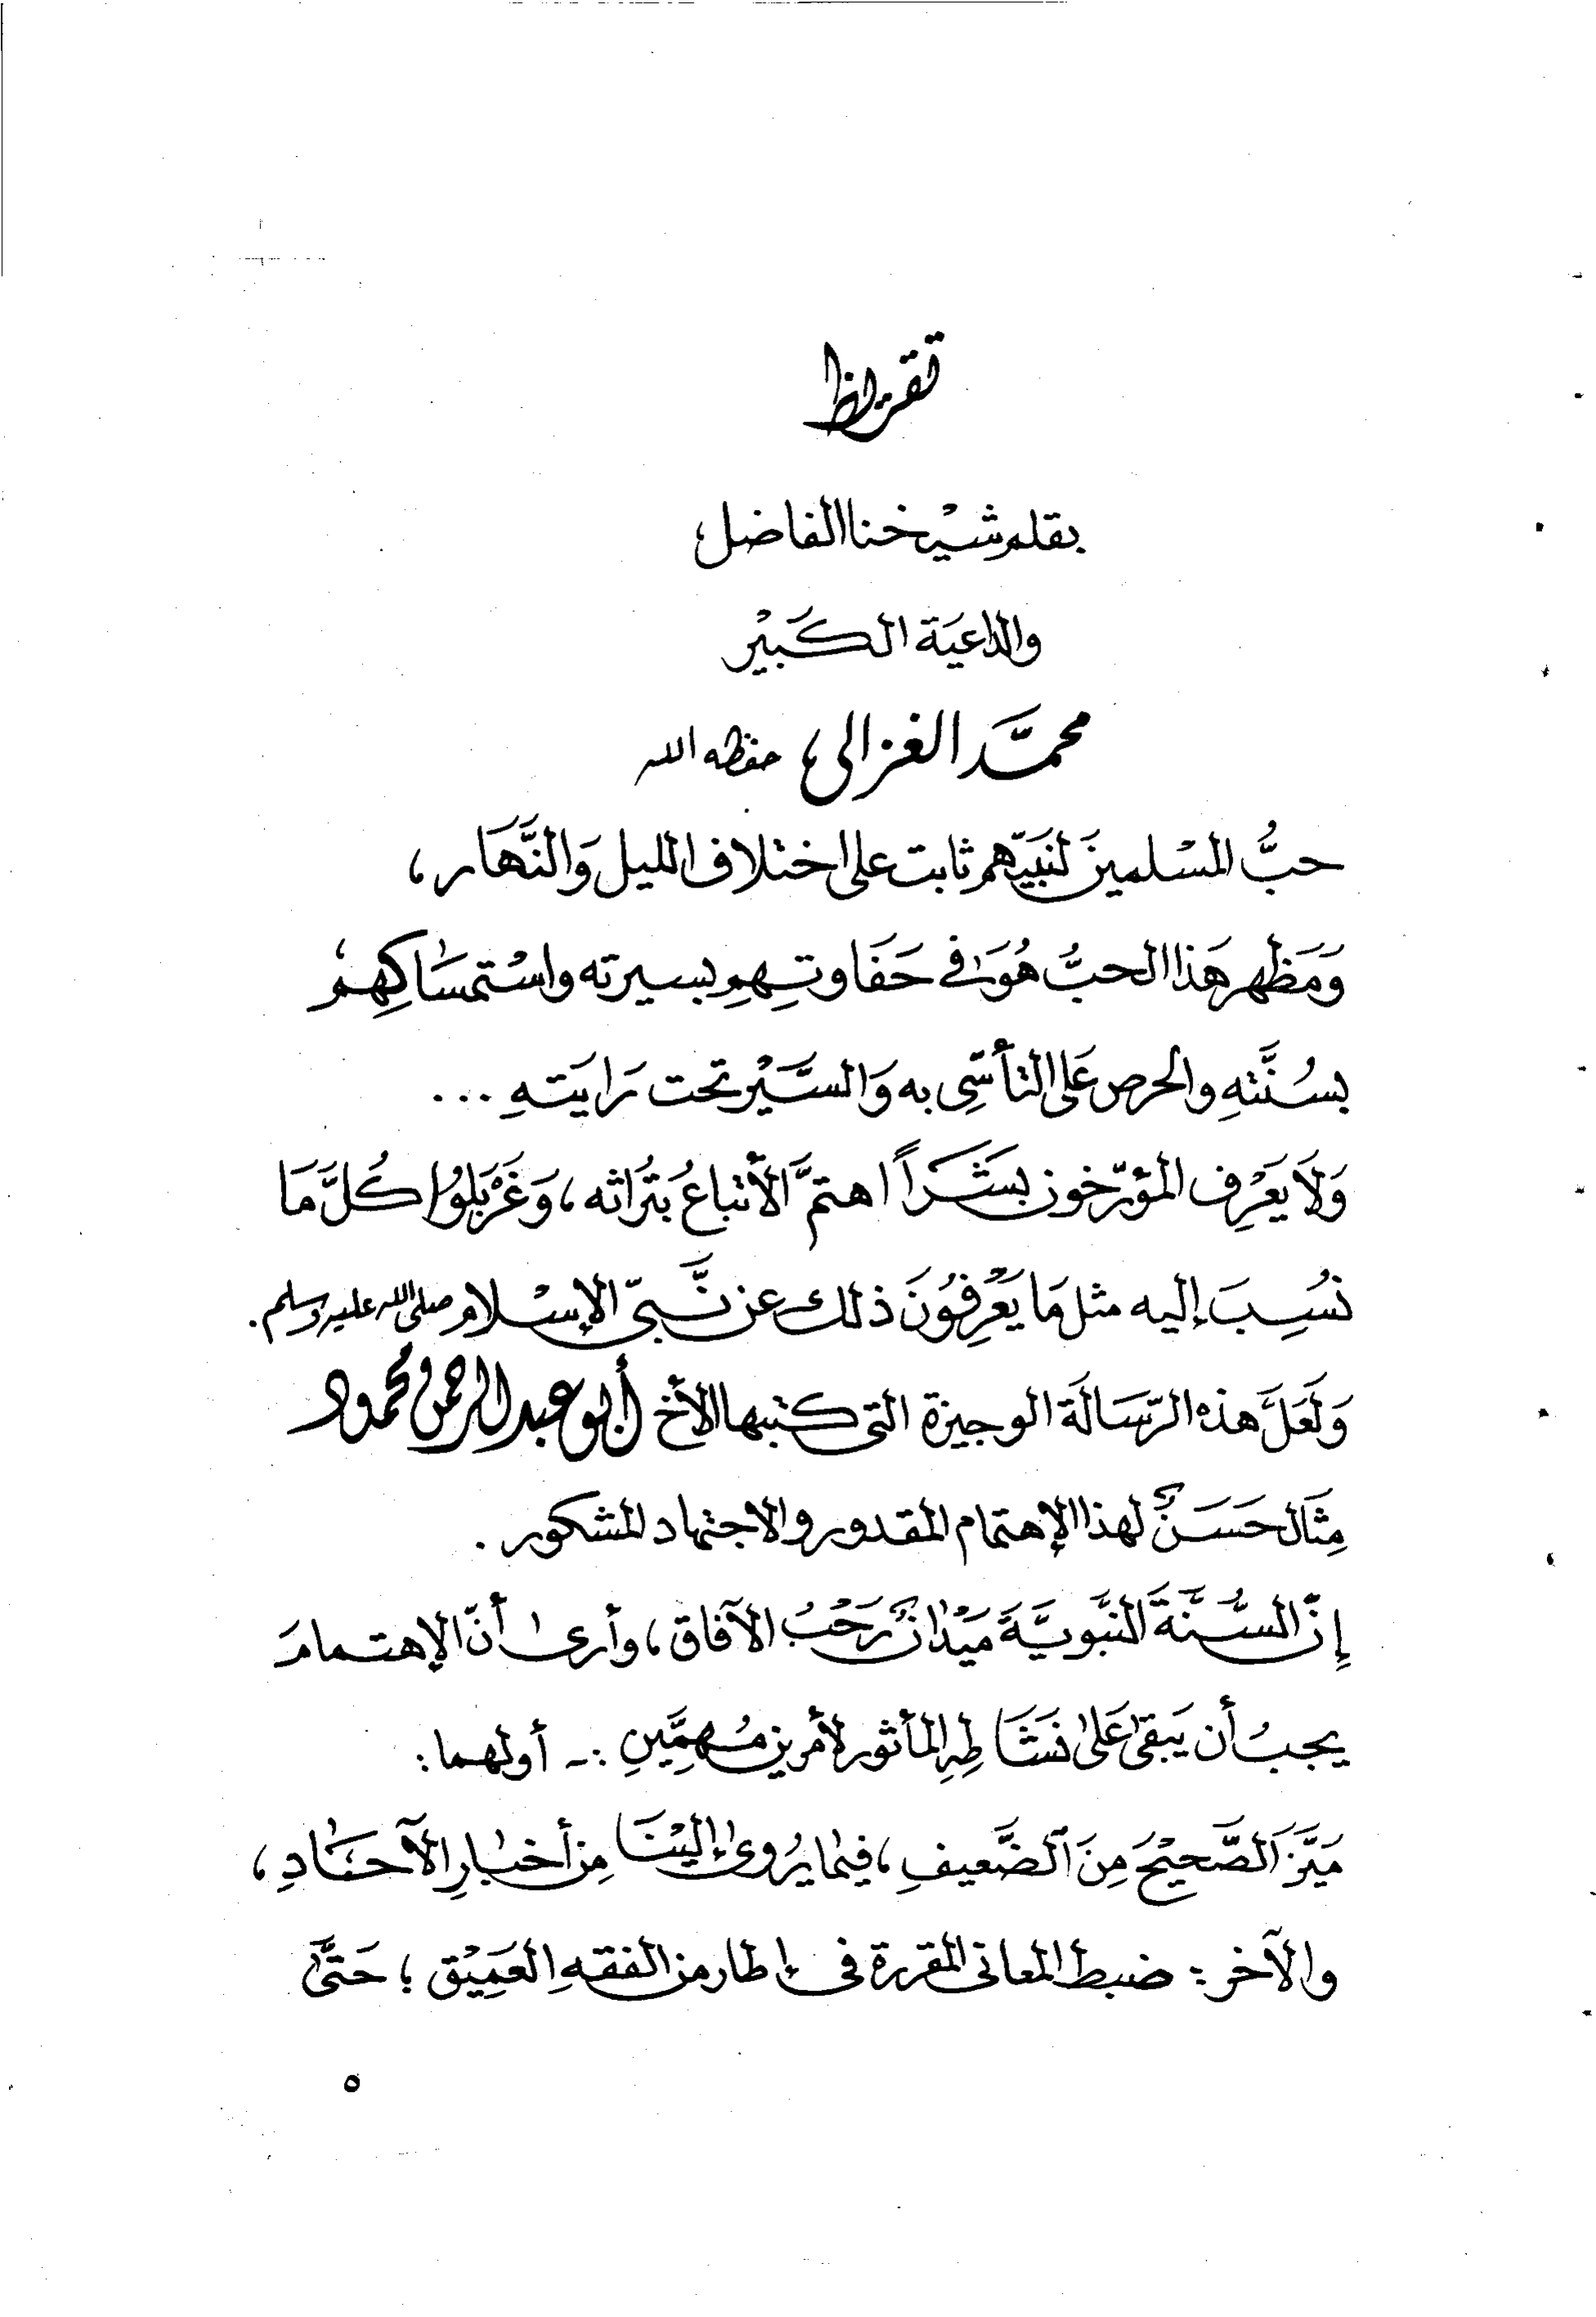 تقريظ
بقلم شيْخنا الفاضل،
والداعيَة الكَبيْر
محمَّد الغزالى، حفظه الله
حبُّ المسْلمينَ لنَبيّهم ثابت على اختلاف الليل وَالنَّهَار،
وَمَظهر هَذا الحبُّ هُوَ فى حَفَاوتِهمِ بسيرته واسْتمسَاكِهِمْ
بسُنَّتهِ والحرص عَلى التأسِّى به وَالسَّيْر تحت رَايَتهِ ...
وَلاَ يَعْرِف المؤرّخون بَشَراً اهتمَّ الأتباعُ بتُراثه، وَغَرْبَلوُا كُلَّ مَا
نُسِبَ إليه مثل مَا يَعْرِفوُنَ ذلك عن نَّبىّ الإسْلام صلى الله عليه وسلم.
وَلَعَلَّ هذه الرّسَالَة الوجيزة التى كتبها الأخ أبو عبد الرحمن محمود
مِثَال حَسَنٌ لهذا الإهتمام المقدور والاجتهاد المشكور.
إنّ السُّنَّةَ النَّبويَّةَ مَيْدانٌ رَحْبُ الآفاق، وأرى أنّ الإهتمامَ
يجبُ أن يَبقى عَلى نَشَاطِهِ المأثور لأمرين مُهِمَّينِ :- أولهما:
مَيَّزَ الصَّحيْحَ مِنَ الضَّعيفِ، فيما يُروى إليْنَا مِن أخبارِ الآحَادِ،
والآخر: ضبط المعانى المقررة فى إطار من الفقهِ العَمِيْق؛ حَتىَّ
٥